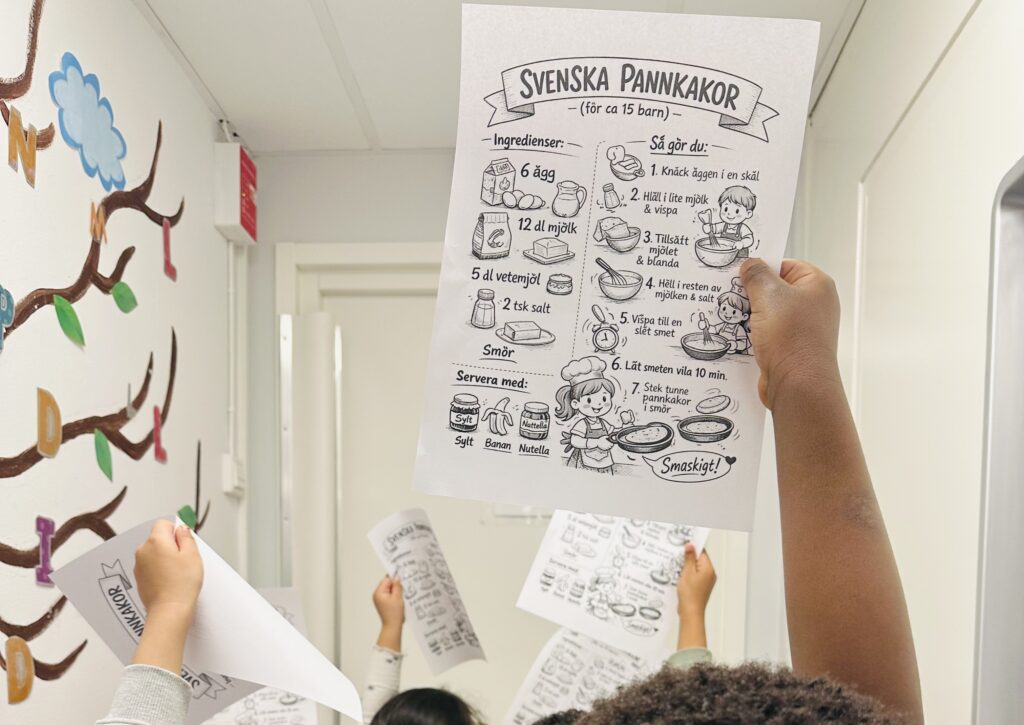 SVENSKA PANNKAKOR
(för ca 15 barn)
Ingredienser:
6 ägg
12 dl mjölk
5 dl vetemjöl
2 tsk salt
Smör
Servera med:
Sylt
Nuttella
Sylt
Banan
Nutella
Så gör du:
1. Knäck äggen i en skål
2. Häll i lite mjölk
& vispa
3. Tillsätt
mjölet
& blanda
4. Häll i resten av
mjölken & salt
5. Vispa till en
slät smet
6. Låt smeten vila 10 min.
7. Stek tunne
pannkakor
i smör
Smaskigt!
N
M
L
D
L
I
D
PANNKAKOR